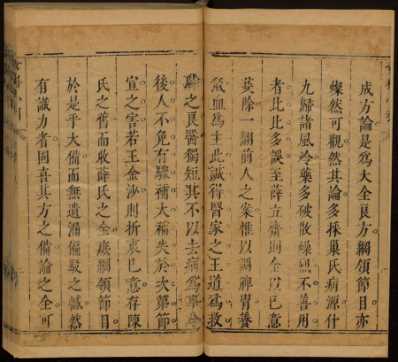 成方論是爲大全良方綱領節目亦
燦然可觀然其論多採巢氏病源什
九歸諸風冷藥多破散緣與不善用
者比比多誤至薛立齋則全以已意
芟除一洞前人之案惟以調脾胃養
氣血爲主此誠得醫家之王道爲救
弊之良醫獨短其不以去病爲事令
後人不免有驟補大補失於次第節
宣之害若王金沙則折衷已意存陳
氏之舊而收薛氏之全廢綱領節目
於是乎大備而無遺漏偏駁之弊然
有識力者固喜其方之備論之全可